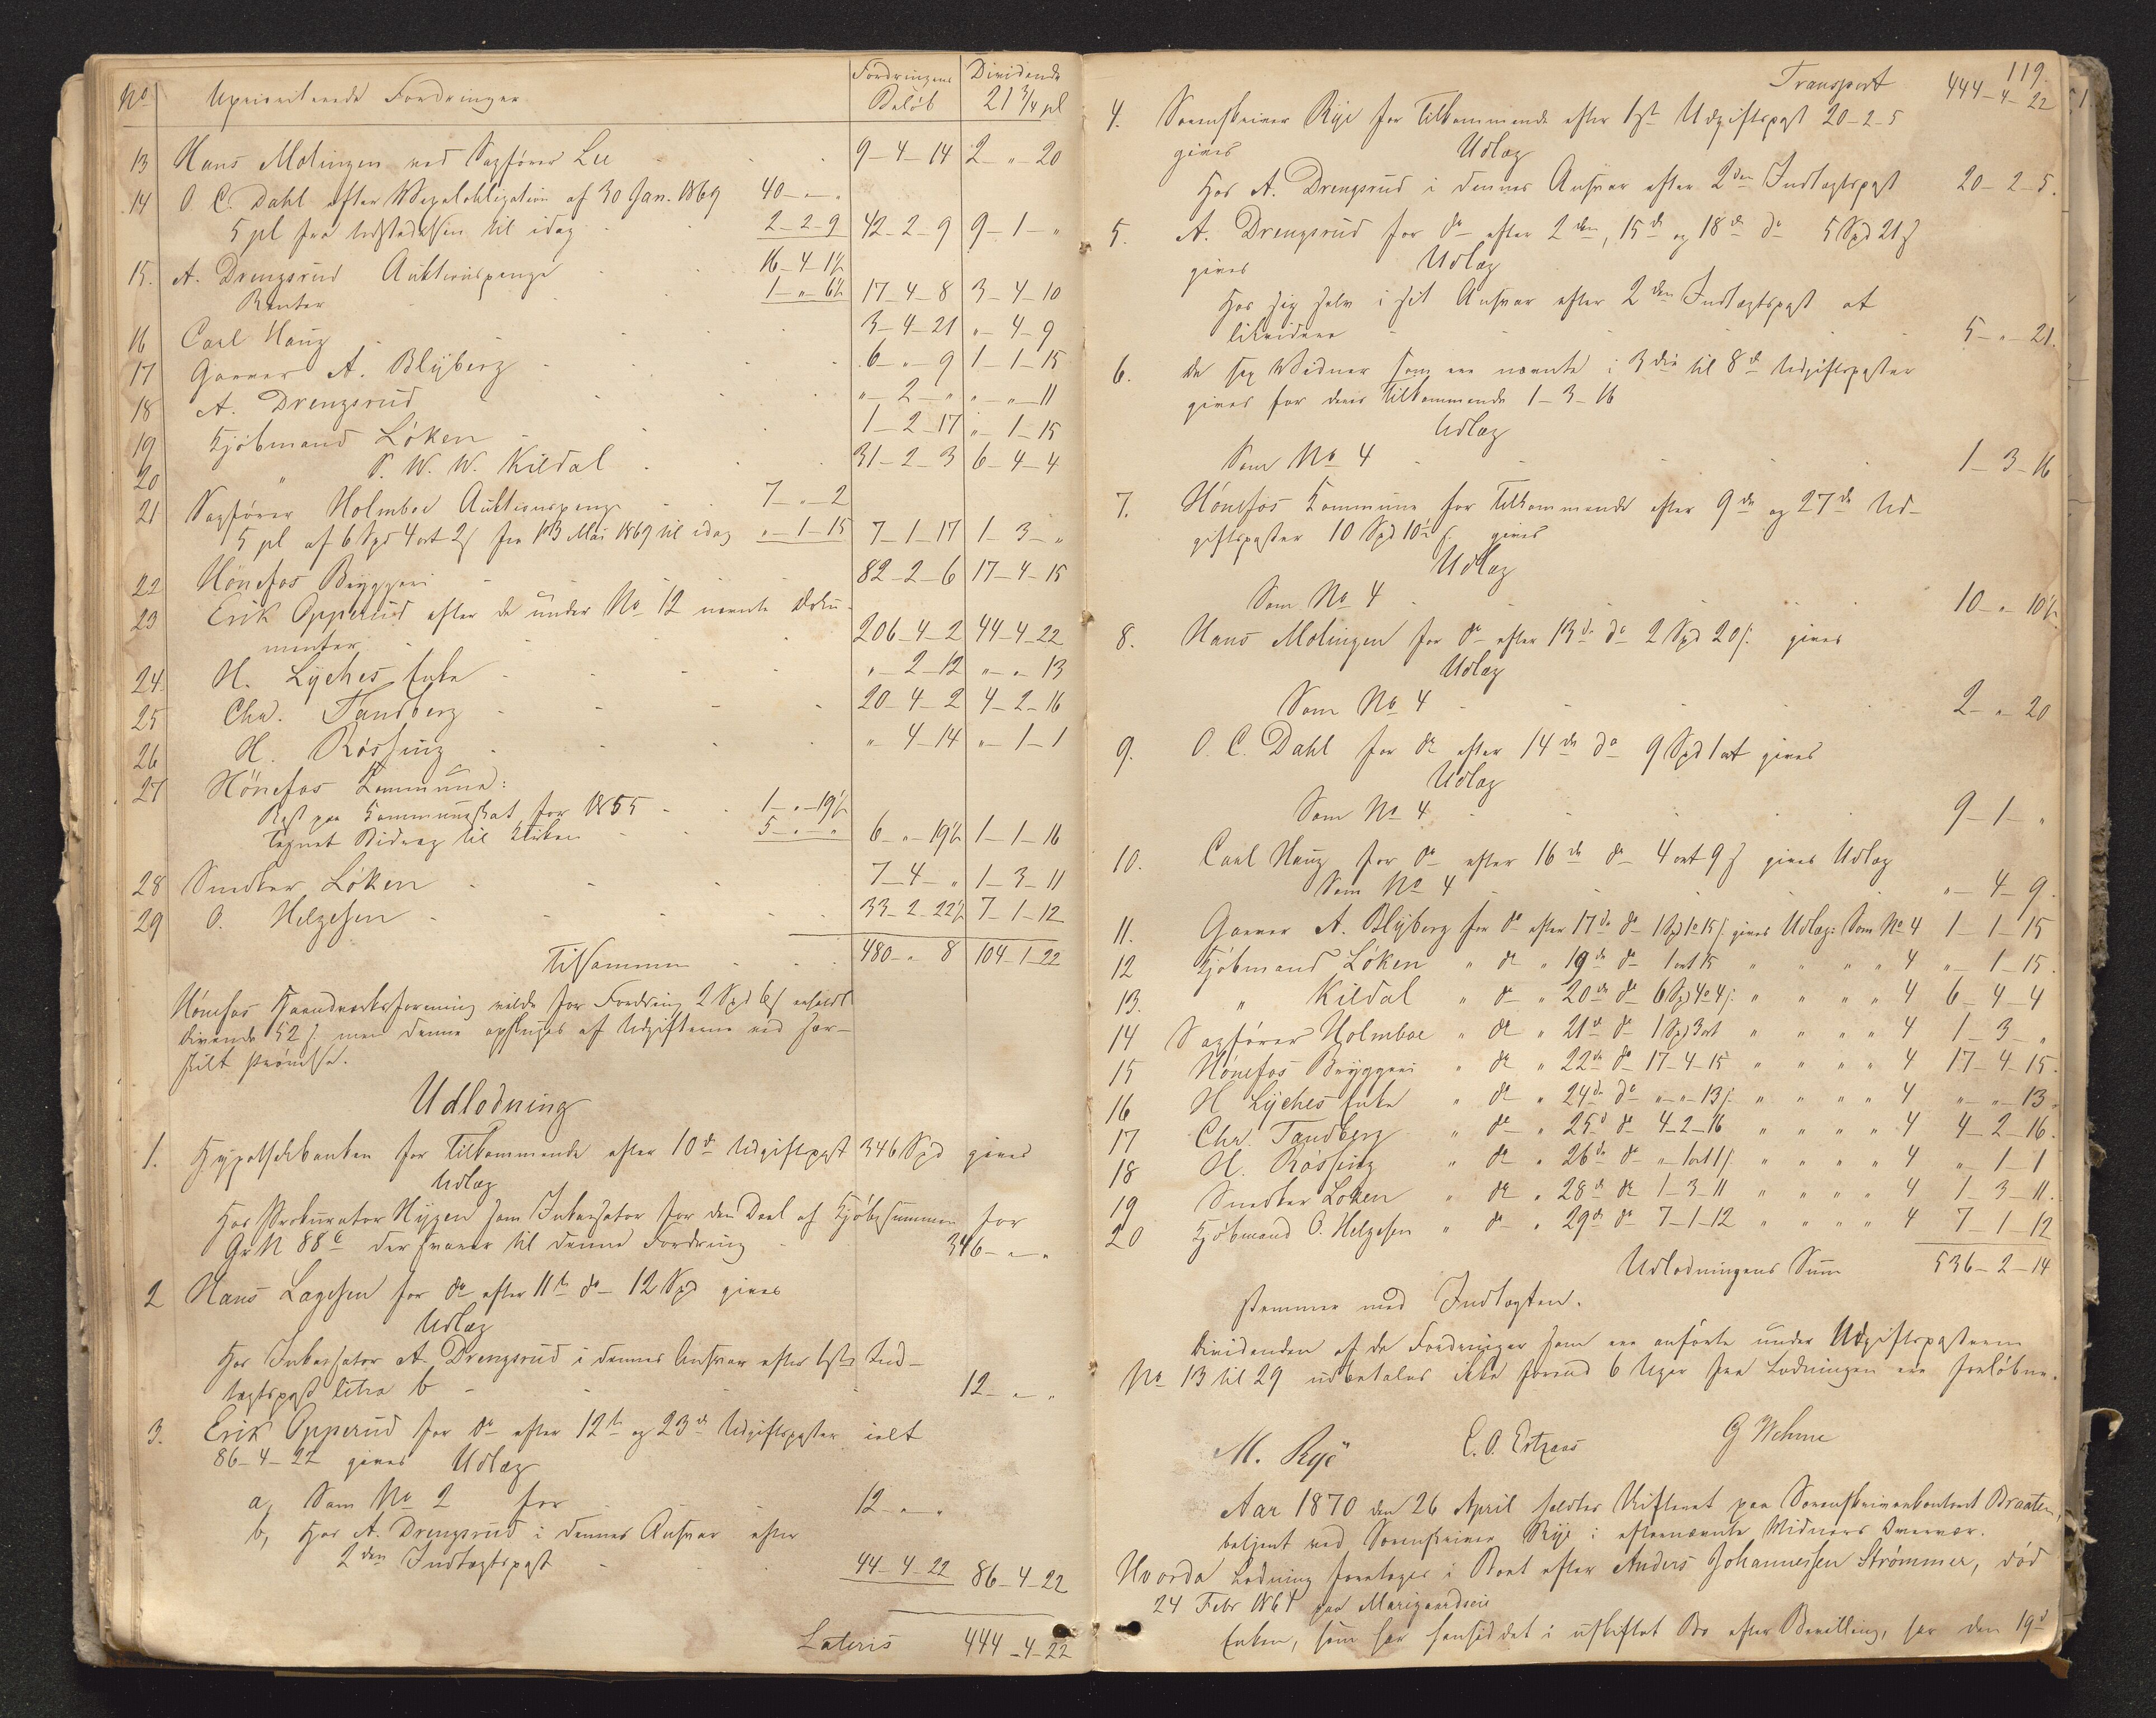 No Uprioriterede Fordringer Fordringens Beløb Dividende 21 3/4 pCt
13 Hans Molingen ved Sagfører Lie 9-4-14 2-"-20
14 O. C. Dahl efter Vexelobligation af 30 Jan. 1869 40-"-"
5 pCt fra Udstedelsen til idag 2-2-9 42-2-9 9-1-"
15. A. Drengsrud Auktionspenge 16-4-1½
Renter 1-"-6½ 17-4-8 3-4-10
16 Carl Haug 3-4-21 "-4-9
17 Garver A. Blyberg 6-"-9 1-1-15
18 A. Drengsrud "-2-" "-"-11
19 Kjøbmand Løken 1-2-17 "-1-15
20 " P. W. W. Kildal 31-2-3 6-4-4
21 Sagfører Holmboe Auktionspenge 7-"-2
5 pCt af 6 Spd 4 ort 2 s fra 13 Mai 1869 til idag "-1-15 7-1-17 1-3-"
22 Hönefos Bryggeri 82-2-6 17-4-15
23 Erik Opperud efter de under No 12 nævnte Doku-
menter 206-4-2 44-4-22
24 H. Lyches Enke "-2-12 "-"-13
25 Chr. Tandberg 20-4-2 4-2-16
26 H. Røssing "-4-14 "-1-1
27 Hönefos Kommune:
Rest paa Kommuneskat for 1855 1-"-19½
Tegnet Bidrag til Kirken 5-"-" 6-"-19½ 1-1-16
28 Snedker Løken 7-4-" 1-3-11
29 O. Helgesen 33-2-22½ 7-1-12
Tilsammen 480-"-8 104-1-22
Hönefos Haandværksforening vilde for Fordring 2 Spd 6 s erholdt
Dividende 52 s men denne opsluges af Udgifterne ved sær-
skilt Prøvelse.
Udlodning
1. Hypothekbanken for Tilkommende efter 10de Udgiftspost 346 Spd gives
Udlæg
Hos Prokurator Hyzen som Inkassator for den Deel af Kjøbesummen for
Gr N 88 c der svarer til denne Fordring 346-"-"
2 Hans Lagesen for do efter 11te do 12 Spd gives
Udlæg
Hos Inkassator A. Drengsrud i dennes Ansvar efter 1ste Ind-
tægtspost litra b 12-"-"
3. Erik Opperud for do efter 12te og 23de Udgiftsposter ialt
86-4-22 gives Udlæg
a, Som No 2 for 12-"-"
b, Hos A. Drengsrud i dennes Ansvar efter
2den Indtægtspost 44-4-22 86-4-22
Lateris 444-4-22
119.
Transport 444-4-22
4. Sorenskriver Rye for Tilkommende efter 1ste Udgiftspost 20-2-5
gives Udlæg
Hos A. Drengsrud i dennes Ansvar efter 2den Indtægtspost 20-2-5.
5. A. Drengsrud for do efter 2den, 15de og 18de do 5 Spd 21 s
gives Udlæg
Hos sig selv i sit Ansvar efter 2den Indtægtspost at
likvidere 5-"-21.
6. de sex Vidner som ere nævnte i 3die til 8de Udgiftsposter
gives for deres Tilkommende 1-3-16
Udlæg
Som No 4 1-3-16
7. Hönefos Kommune for Tilkommende efter 9de og 27de Ud-
giftsposter 10 Spd 10½ s gives
Udlæg
Som No 4 10-"-10½
8. Hans Molingen for do efter 13de do 2 Spd 20 s gives
Udlæg
Som No 4 2-"-20
9. O. C. Dahl for do efter 14de do 9 Spd 1 ort gives
Udlæg
Som No 4 9-1-"
10. Carl Haug for do efter 16de do 4 ort 9 s gives Udlæg
Som No 4 "-4-9.
11. Garver A. Blyberg for do efter 17de do 1 Spd 1 o 15 s gives Udlæg: Som No 4 1-1-15
12 Kjøbmand Løken " do " 19de do 1 ort 15 " " " " 4 "-1-15.
13. " Kildal " do " 20de do 6 Spd 4 o 4 s " " " " 4 6-4-4
14 Sagfører Holmboe " do " 21de do 1 Spd 3 ort " " " " 4 1-3-"
15 Hönefos Bryggeri " do " 22de do 17-4-15 " " " " 4 17-4-15.
16 H Lyches Enke " do " 24de do "-"-13 s " " " " 4 "-"-13.
17 Chr. Tandberg " do " 25de do 4-2-16 " " " " 4 4-2-16.
18 H. Røssing " do " 26de do "-1 ort 1 s " " " " 4 "-1-1
19 Snedker Løken " do " 28de do 1-3-11 " " " " 4 1-3-11.
20 Kjøbmand O. Helgesen " do " 29de do 7-1-12 " " " " 4 7-1-12
Udlodningens Sum 536-2-14
stemmer med Indtægten.
Dividenden af de Fordringer som ere anførte under Udgiftsposterne
No 13 til 29 udbetales ikke førend 6 Uger fra Lodningen ere forløbne.
M. Rye G Wehme
Aar 1870 den 26 April holdtes Skifteret paa Sorenskriverkontoret Braaten,
betjent ved Sorenskriver Rye i efternævnte Vidners Overvær.
Hvorda Lodning foretages i Boet efter Anders Johannessen Strömmer, død
24 Febr 1861 paa Marigaardseie
Enken, som har hensiddet i uskiftet Bo efter Bevilling, har den 19de